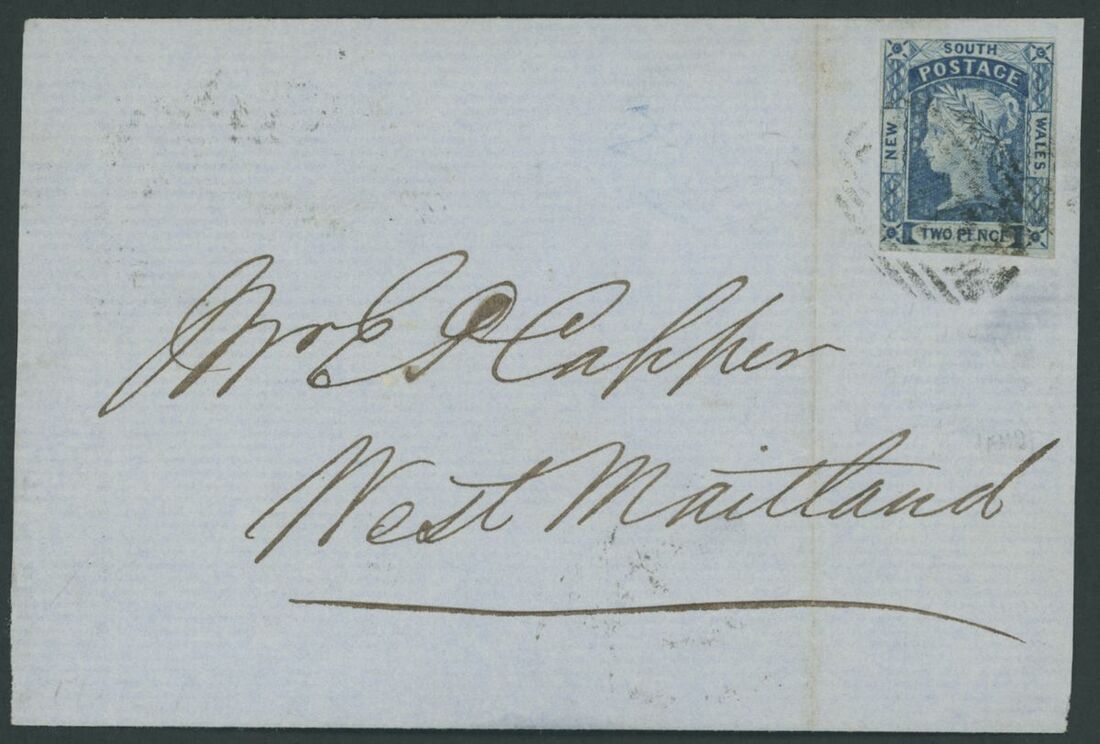 SOUTH
POSTAGE
NEW
WALES
TWO PENCE
Mr E P Capper
West Maitland